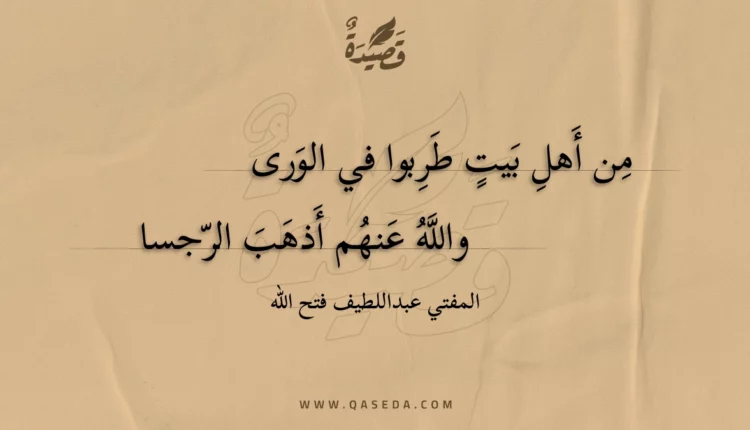 قَصِيدَةٌ
مِن أَهلِ بَيتٍ طَرِبوا في الوَرى
واللَّهُ عَنهُم أَذهَبَ الرّجسا
المفتي عبداللطيف فتح الله
WWW.QASEDA.COM